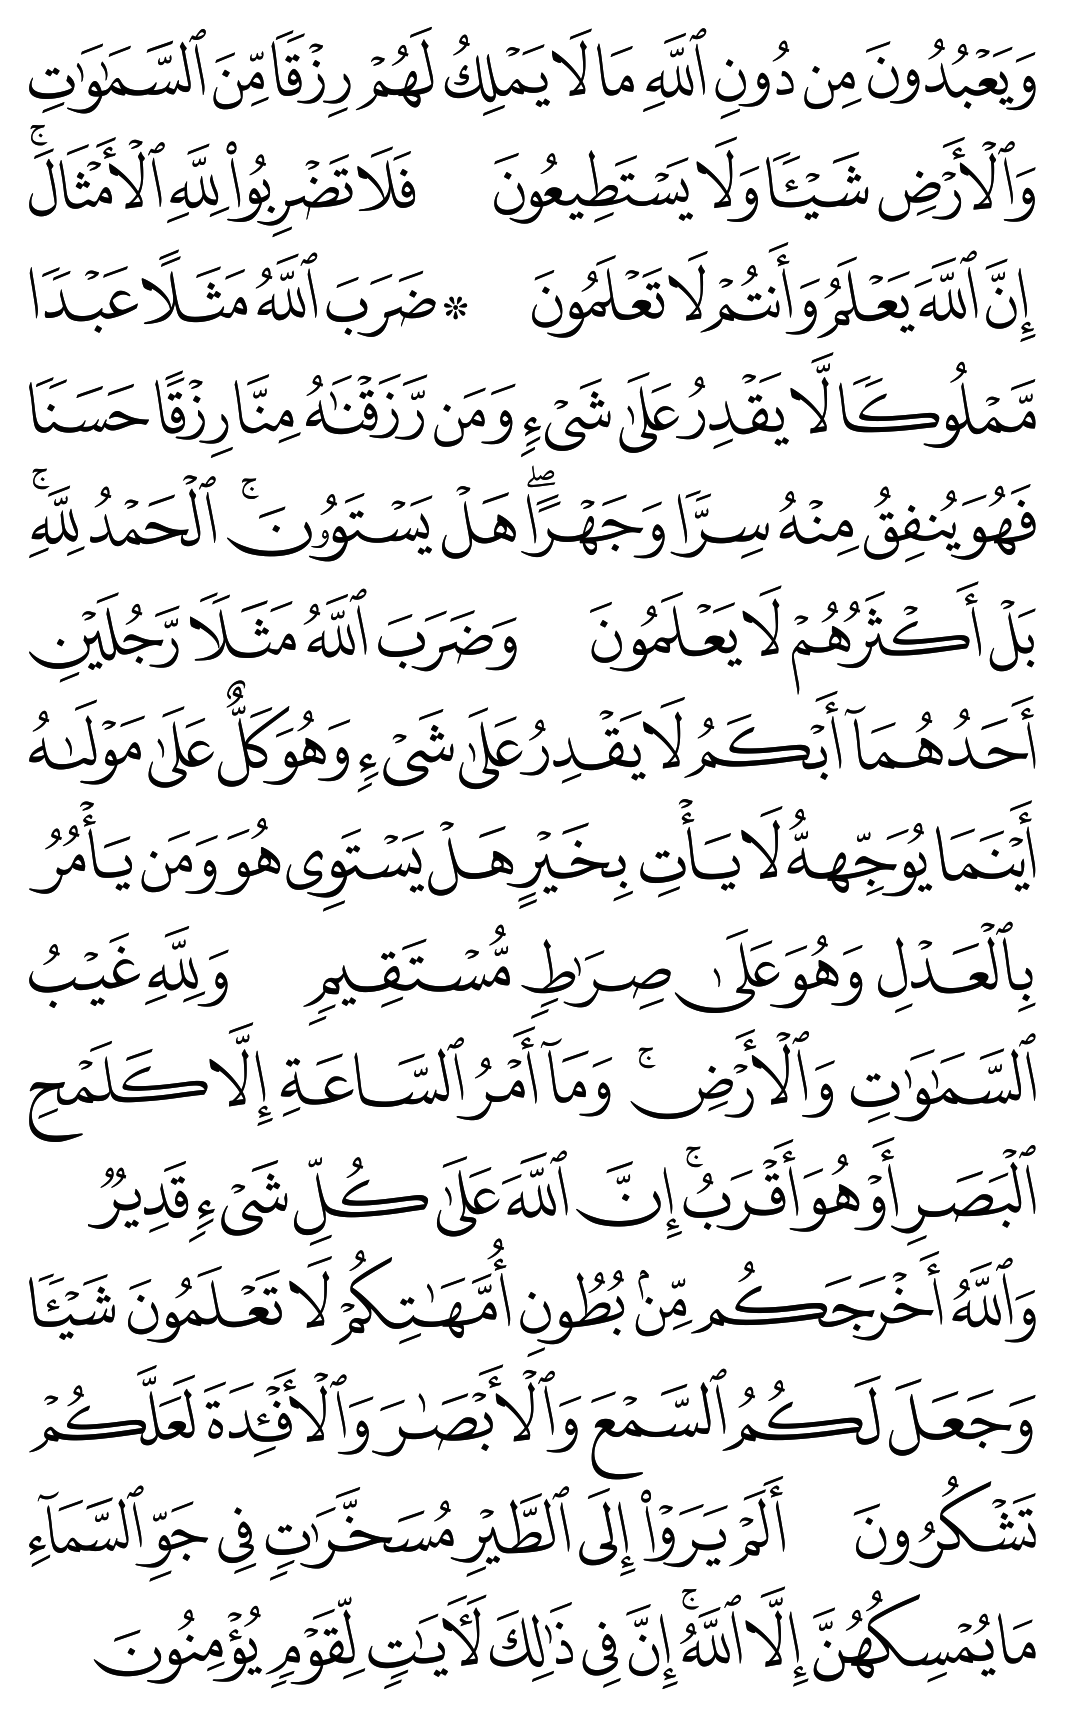 وَيَعْبُدُونَ مِن دُونِ ٱللَّهِ مَا لَا يَمْلِكُ لَهُمْ رِزْقًا مِّنَ ٱلسَّمَـٰوَٰتِ
وَٱلْأَرْضِ شَيْـًٔا وَلَا يَسْتَطِيعُونَ فَلَا تَضْرِبُوا۟ لِلَّهِ ٱلْأَمْثَالَ ۚ
إِنَّ ٱللَّهَ يَعْلَمُ وَأَنتُمْ لَا تَعْلَمُونَ ۞ ضَرَبَ ٱللَّهُ مَثَلًا عَبْدًا
مَّمْلُوكًا لَّا يَقْدِرُ عَلَىٰ شَىْءٍ وَمَن رَّزَقْنَـٰهُ مِنَّا رِزْقًا حَسَنًا
فَهُوَ يُنفِقُ مِنْهُ سِرًّا وَجَهْرًا ۖ هَلْ يَسْتَوُۥنَ ۚ ٱلْحَمْدُ لِلَّهِ ۚ
بَلْ أَكْثَرُهُمْ لَا يَعْلَمُونَ وَضَرَبَ ٱللَّهُ مَثَلًا رَّجُلَيْنِ
أَحَدُهُمَآ أَبْكَمُ لَا يَقْدِرُ عَلَىٰ شَىْءٍ وَهُوَ كَلٌّ عَلَىٰ مَوْلَىٰهُ
أَيْنَمَا يُوَجِّههُّ لَا يَأْتِ بِخَيْرٍ هَلْ يَسْتَوِى هُوَ وَمَن يَأْمُرُ
بِٱلْعَدْلِ وَهُوَ عَلَىٰ صِرَٰطٍ مُّسْتَقِيمٍ وَلِلَّهِ غَيْبُ
ٱلسَّمَـٰوَٰتِ وَٱلْأَرْضِ ۚ وَمَآ أَمْرُ ٱلسَّاعَةِ إِلَّا كَلَمْحِ
ٱلْبَصَرِ أَوْ هُوَ أَقْرَبُ ۚ إِنَّ ٱللَّهَ عَلَىٰ كُلِّ شَىْءٍ قَدِيرٌ
وَٱللَّهُ أَخْرَجَكُم مِّنۢ بُطُونِ أُمَّهَـٰتِكُمْ لَا تَعْلَمُونَ شَيْـًٔا
وَجَعَلَ لَكُمُ ٱلسَّمْعَ وَٱلْأَبْصَـٰرَ وَٱلْأَفْـِٔدَةَ لَعَلَّكُمْ
تَشْكُرُونَ أَلَمْ يَرَوْا۟ إِلَى ٱلطَّيْرِ مُسَخَّرَٰتٍ فِى جَوِّ ٱلسَّمَآءِ
مَا يُمْسِكُهُنَّ إِلَّا ٱللَّهُ ۚ إِنَّ فِى ذَٰلِكَ لَـَٔايَـٰتٍ لِّقَوْمٍ يُؤْمِنُونَ